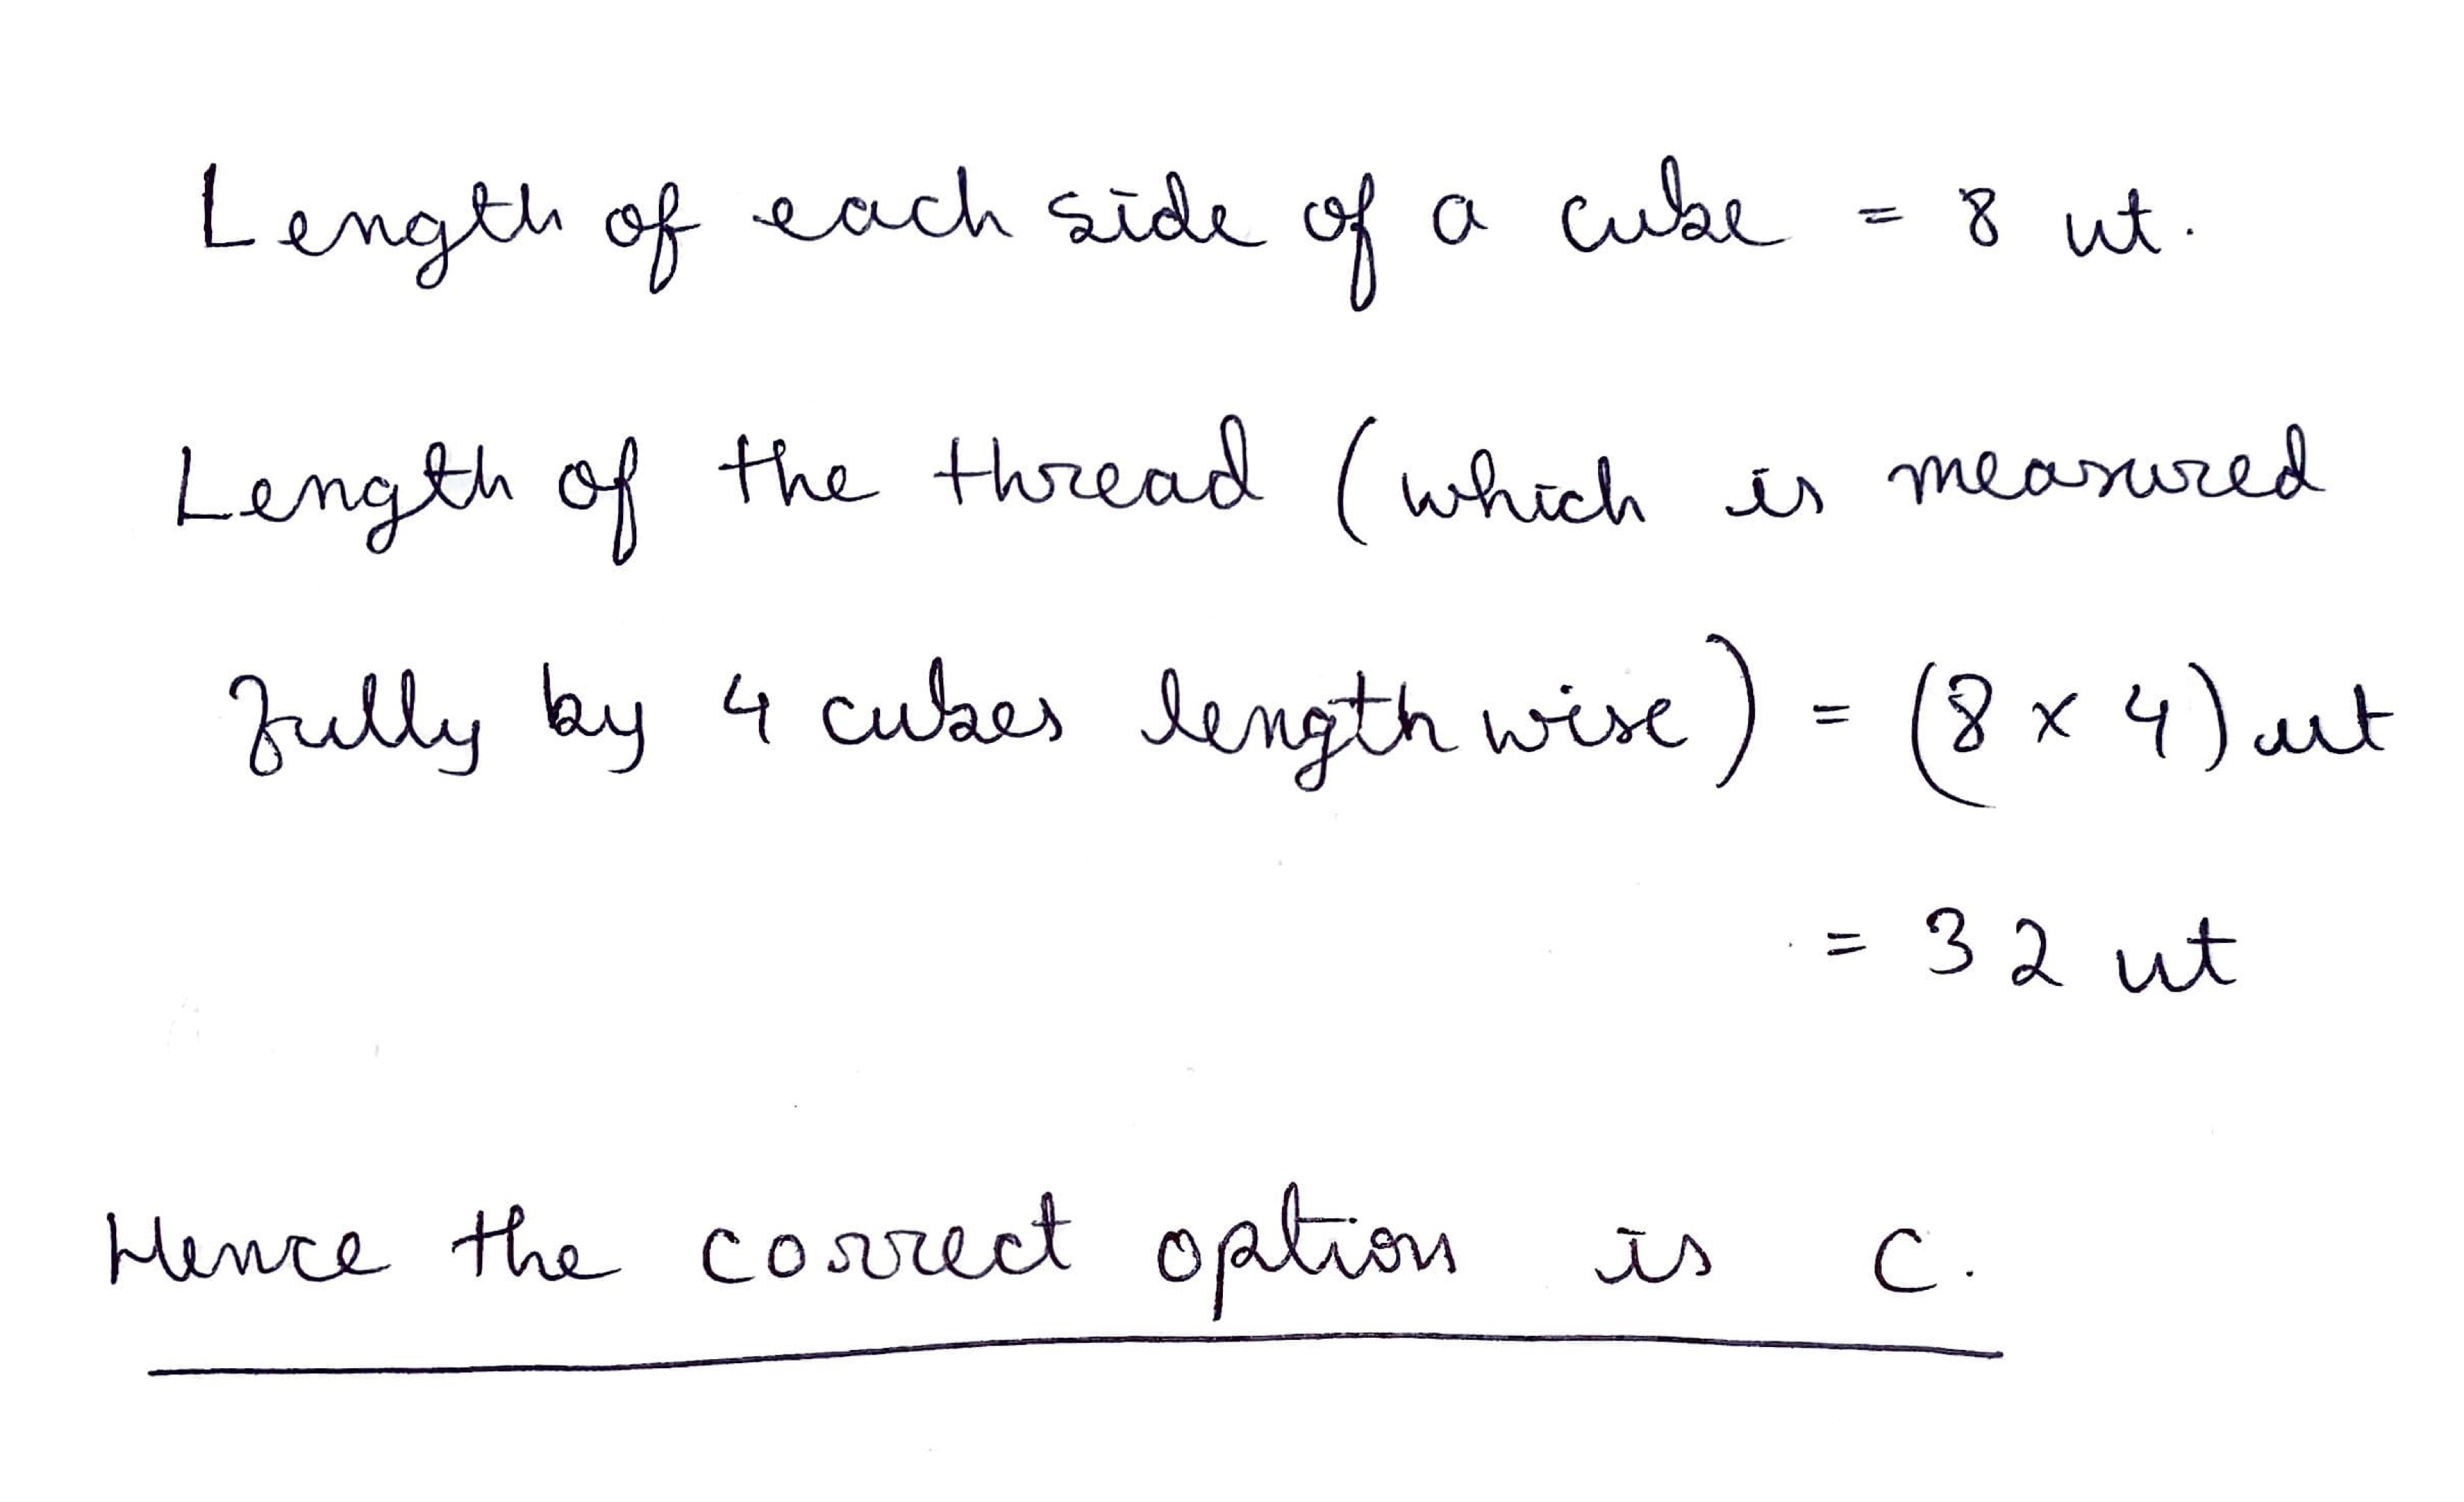 Length of each side of a cube = 8 ut.
Length of the thread (which is measured
fully by 4 cubes length wise) = (8 x 4) ut
= 32 ut
Hence the correct option is C.